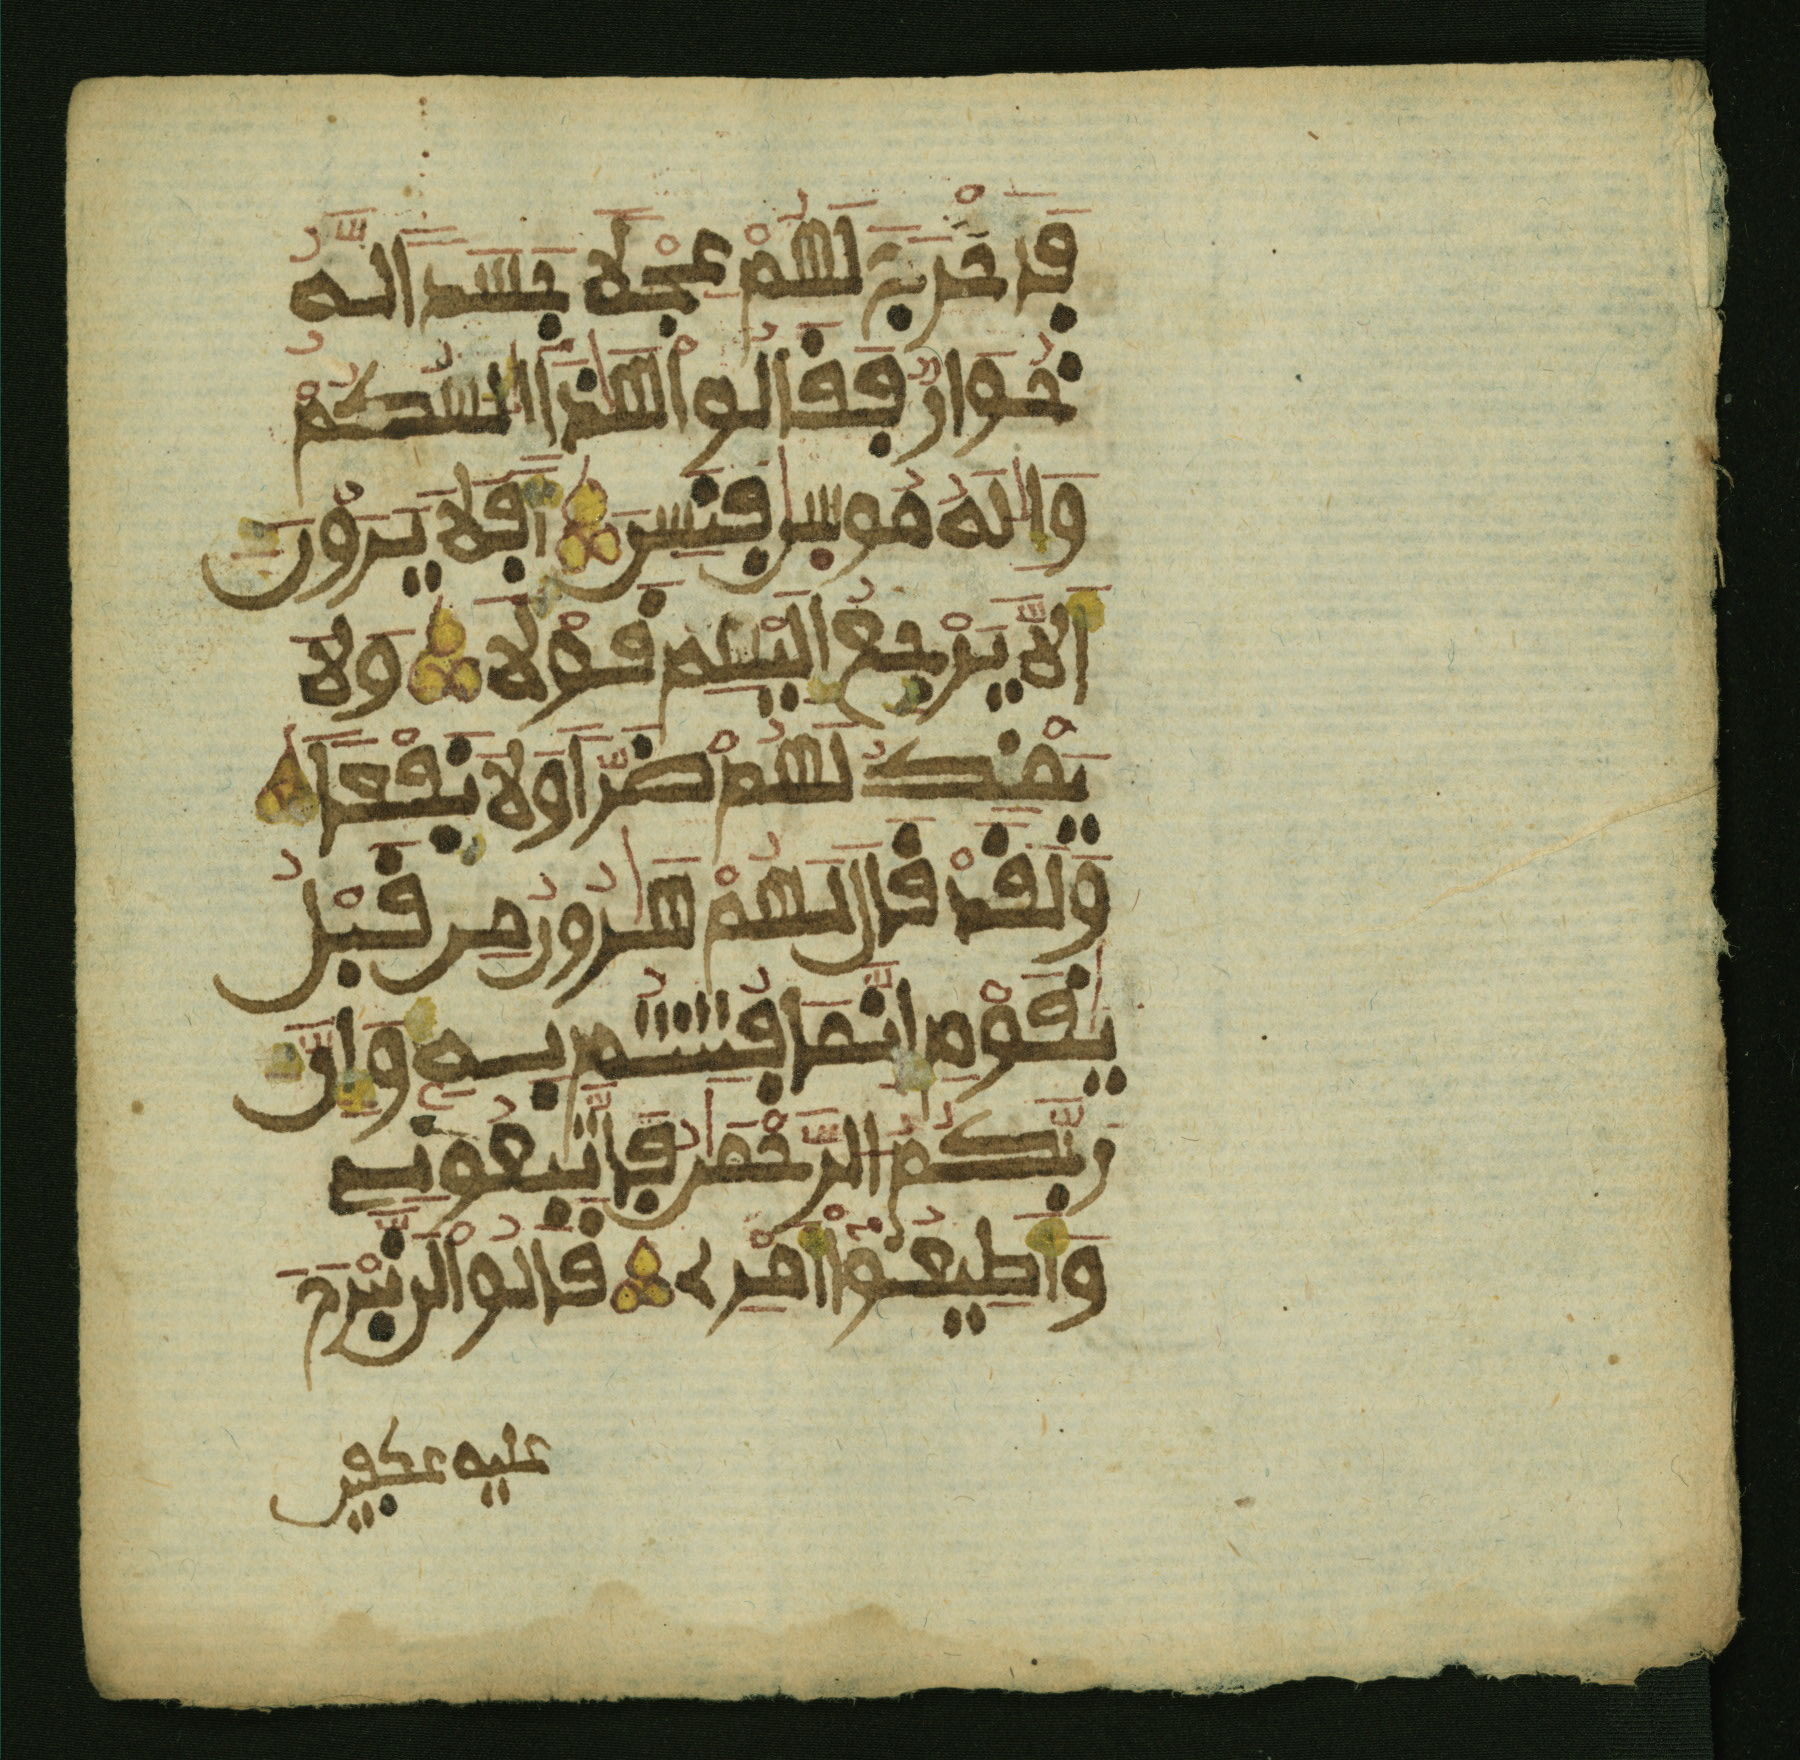 فَأَخْرَجَ لَهُمْ عِجْلًا جَسَدًا لَّهُ
خُوَارٌ فَقَالُوا هَٰذَا إِلَٰهُكُمْ
وَإِلَٰهُ مُوسَىٰ فَنَسِيَ أَفَلَا يَرَوْنَ
أَلَّا يَرْجِعُ إِلَيْهِمْ قَوْلًا وَلَا
يَمْلِكُ لَهُمْ ضَرًّا وَلَا نَفْعًا
وَلَقَدْ قَالَ لَهُمْ هَٰرُونُ مِن قَبْلُ
يَٰقَوْمِ إِنَّمَا فُتِنتُم بِهِ وَإِنَّ
رَبَّكُمُ الرَّحْمَٰنُ فَاتَّبِعُونِي
وَأَطِيعُوا أَمْرِي قَالُوا لَن نَّبْرَحَ
عليه عكفين